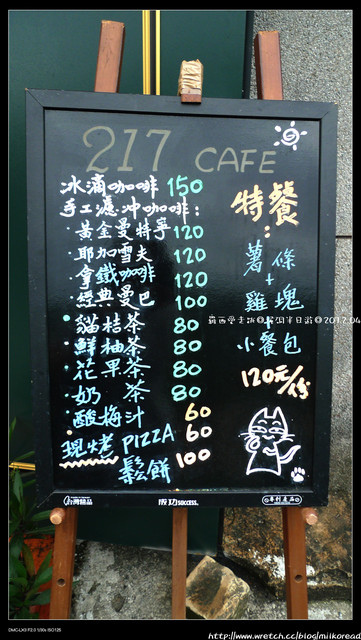 217 CAFE
冰滴咖啡 150
手工濾沖咖啡:
·黃金曼特寧 120
·耶加雪夫 120
·拿鐵咖啡 120
·經典曼巴 100
·貓桔茶 80
·鮮柚茶 80
·花果茶 80
·奶 茶 80
·酸梅汁 60
現烤 PIZZA 60
鬆餅 100
特餐
:
薯條
+
雞塊
+
小餐包
120元/份
台灣精品
成功 SUCCESS.
專利產品
2017.04
DMC-LX3 F2.0 1/30s ISO125
http://www.wretch.cc/blog/milkoread